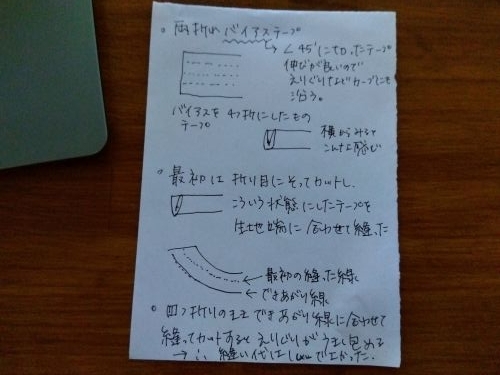 。両折れバイアステープ
∠45°に切ったテープ
伸びが良いので
えりぐりなどカーブにも
沿う。
バイアスを4つ折にしたもの
テープ
横からみると
こんな感じ
。最初は折り目にそってカットし、
こういう状態にしたテープを
生地端に合わせて縫った
← 最初の縫った線
← できあがり線
。四つ折りのままできあがり線に合わせて
縫ってカットするとえりぐりがうまく包める
→ ∴ 縫い代は1cmでよかった。